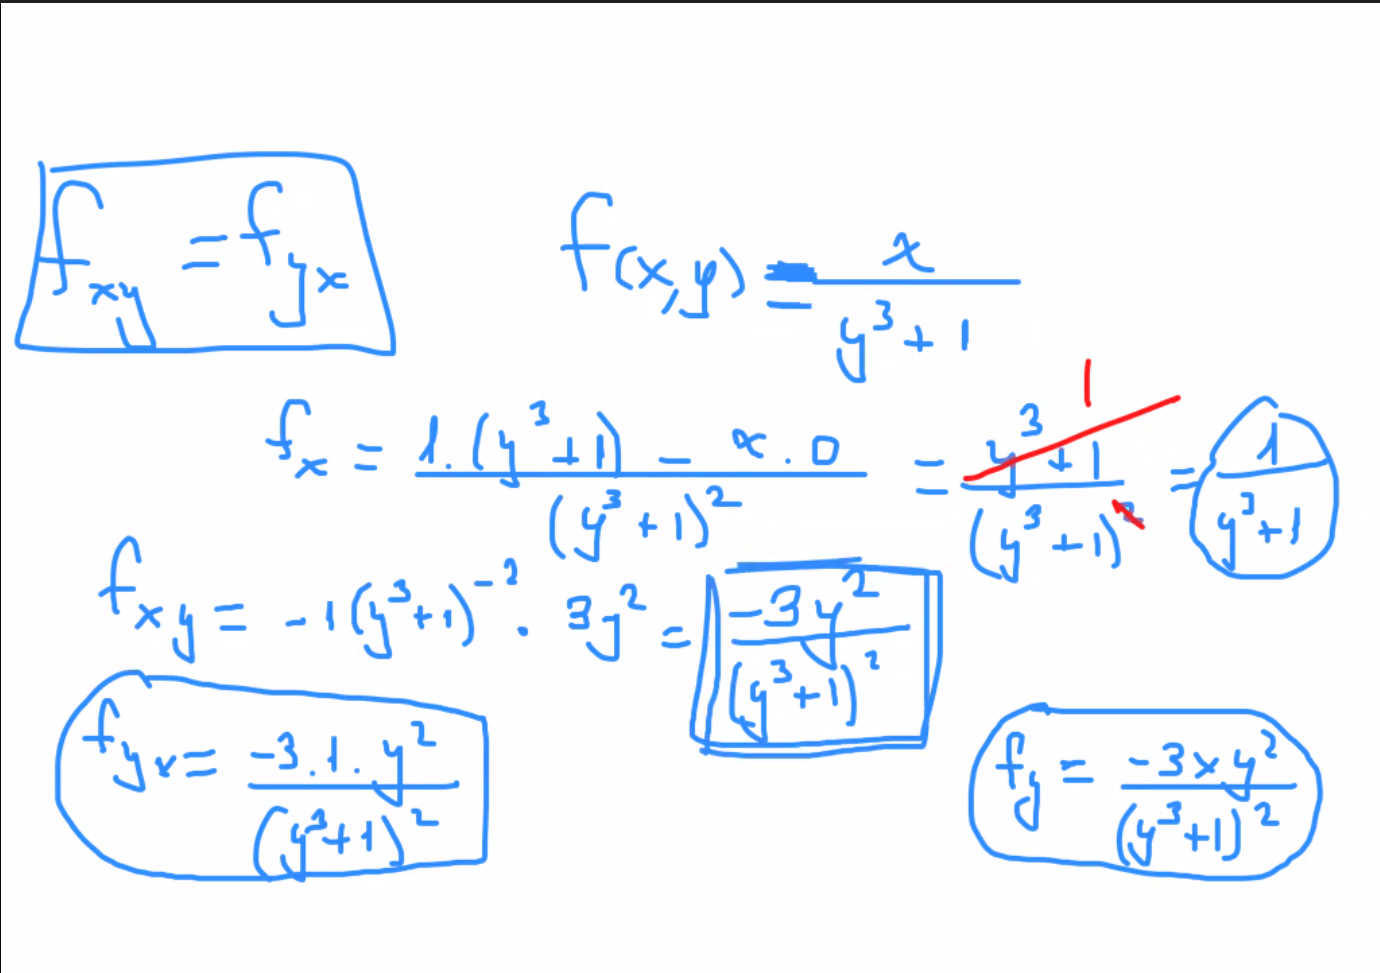 f_xy = f_yx
f(x,y) = x / (y³ + 1)
f_x = (1·(y³+1) − x·0) / (y³+1)² = (y³+1) / (y³+1)² = 1 / (y³+1)
1
f_xy = −1(y³+1)⁻² · 3y² = −3y² / (y³+1)²
f_yx = −3·1·y² / (y³+1)²
f_y = −3xy² / (y³+1)²